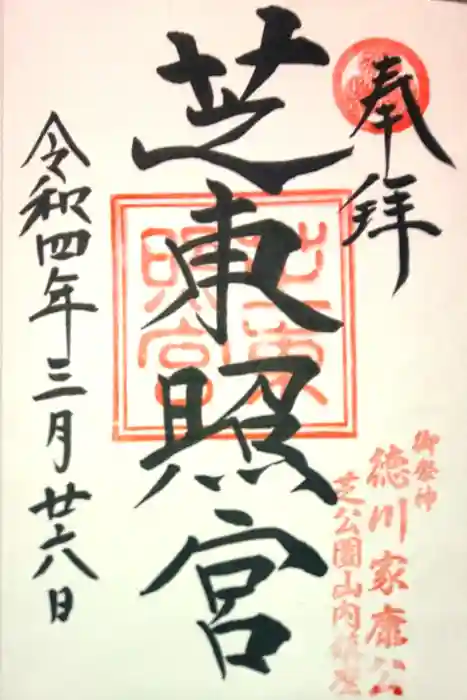 奉拝
御祭神
徳川家康公
芝公園山内鎮座
芝東照宮
芝東照宮
令和四年三月廿六日